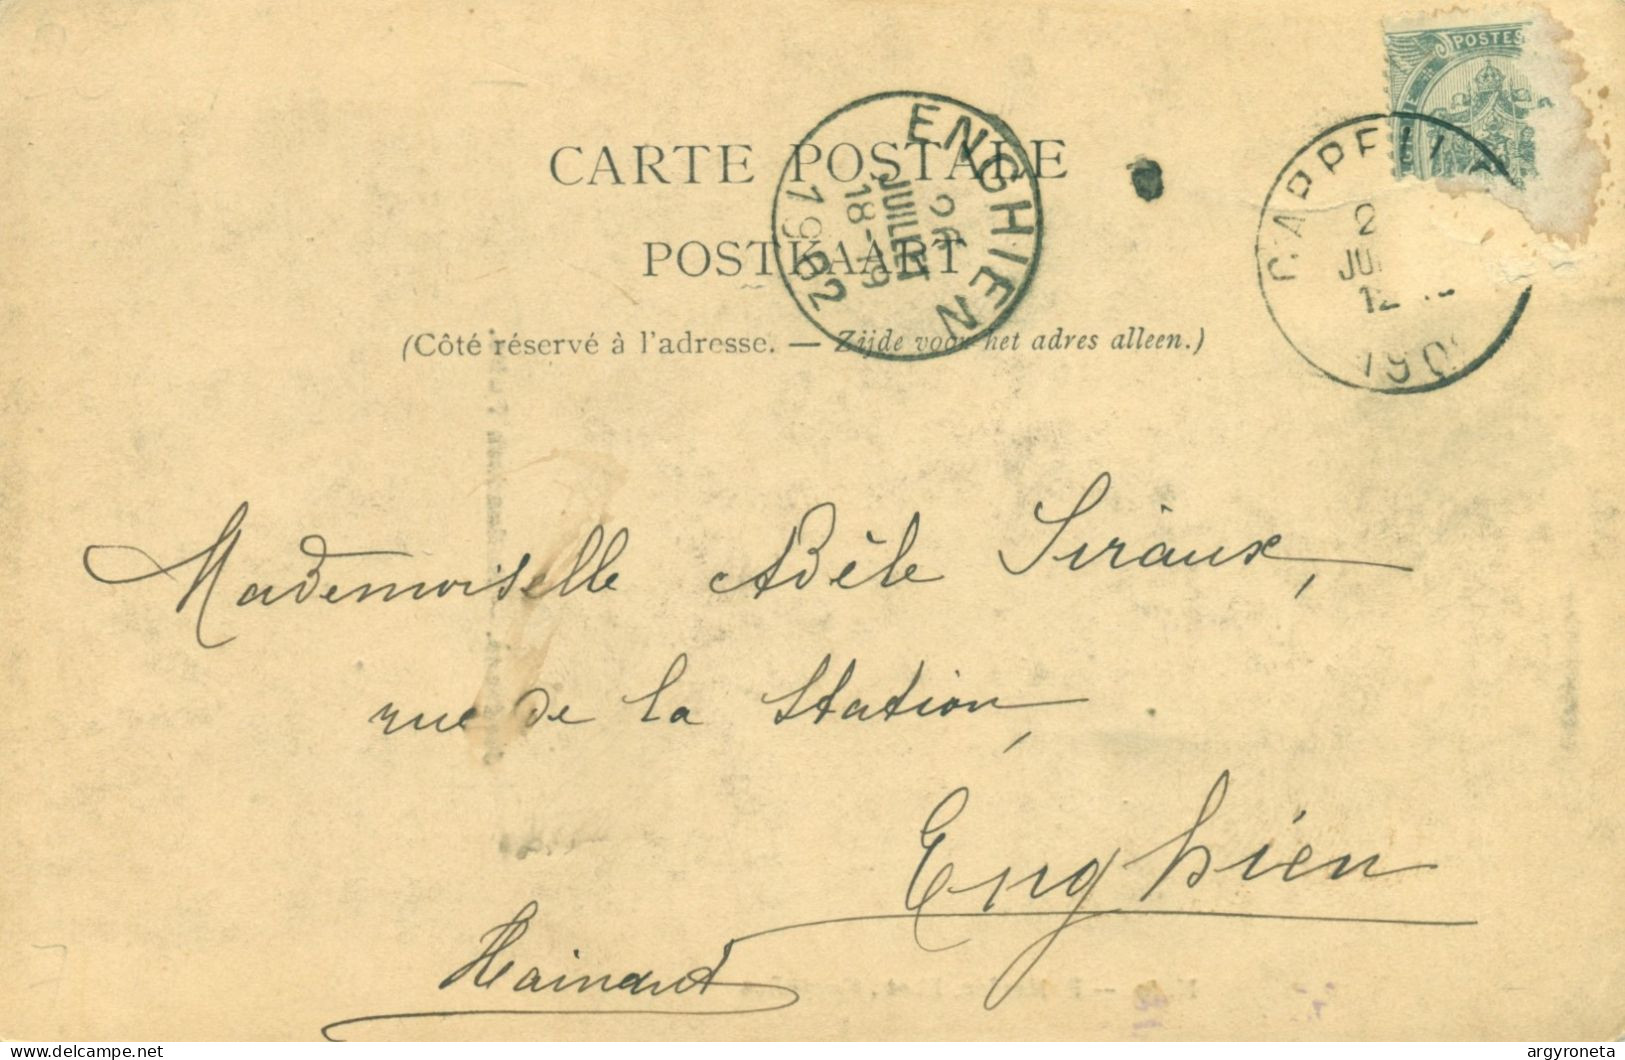 POSTES
CARTE POSTALE
POSTKAART
(Côté réservé à l'adresse. — Zijde voor het adres alleen.)
ENGHIEN
26
JUILLET
18-19
1902
CAPPELL
2
JUI
12
190
Mademoiselle Adèle Siraux,
rue de la Station,
Enghien
Hainaut
argyroneta